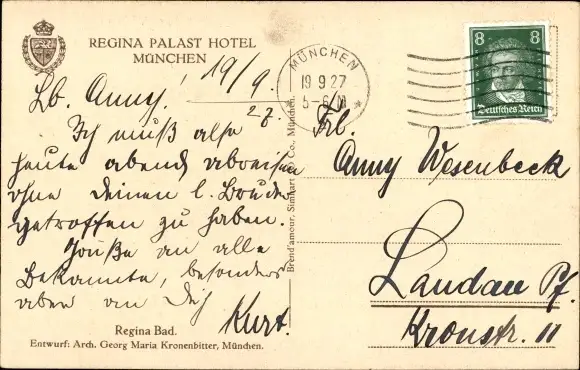 REGINA PALAST HOTEL
MÜNCHEN
19/9.
27.
Lb. Anny!
Ich muß also
heute abend abreisen
ohne Deinen l. Bruder
getroffen zu haben.
Grüße an alle
Bekannte, besonders
aber an Dich
Kurt.
Regina Bad.
Entwurf: Arch. Georg Maria Kronenbitter, München.
Brend'amour, Simhart & Co., München.
MÜNCHEN
19 9.27
8 8
Deutsches Reich
Frl.
Anny Wesenbeck
Landau Pf.
Kronstr. 11